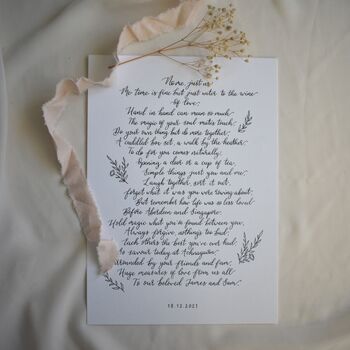 No me, just us
Me time is fine but just water to the wine
of love.
Hand in hand can mean so much
The magic of your soul mates touch.
Do your own thing but do more together,
A cuddled box set, a walk by the heather.
To do for you comes naturally,
Opening a door or a cup of tea,
Simple things just you and me,
Laugh together, sort it out,
forget what it was you were rowing about,
But remember how life was so less loved
Before Aberdeen and Singapore.
Hold magic what you've found between you,
Always forgive, nothings too bad,
Each others the best you've ever had,
So savour today at Achnagairn,
Surrounded by your friends and fam,
Huge measures of love from us all
To our beloved James and Sam.
18.12.2021